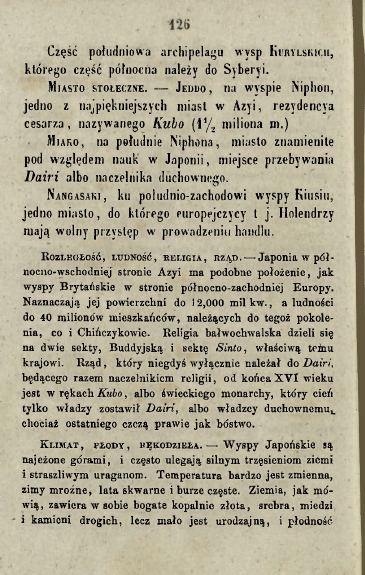 126
Część południowa archipelagu wysp Kurylskich,
którego część północna należy do Syberyi.
Miasto stołeczne. — Jeddo, na wyspie Niphon,
jedno z najpiękniejszych miast w Azyi, rezydencya
cesarza, nazywanego Kubo (1½ miliona m.)
Miako, na południe Niphona, miasto znamienite
pod względem nauk w Japonii, miejsce przebywania
Dairi albo naczelnika duchownego.
Nangasaki, ku południo-zachodowi wyspy Kiusiu,
jedno miasto, do którego europejczycy t j. Holendrzy
mają wolny przystęp w prowadzeniu handlu.
Rozległość, ludność, religia, rząd.—Japonia w pół-
nocno-wschodniej stronie Azyi ma podobne położenie, jak
wyspy Brytańskie w stronie północno-zachodniej Europy.
Naznaczają jej powierzchni do 12,000 mil kw., a ludności
do 40 milionów mieszkańców, należących do tegoż pokole-
nia, co i Chińczykowie. Religia bałwochwalska dzieli się
na dwie sekty, Buddyjską i sektę Sinto, właściwą temu
krajowi. Rząd, który niegdyś wyłącznie należał do Dairi,
będącego razem naczelnikiem religii, od końca XVI wieku
jest w rękach Kubo, albo świeckiego monarchy, który cień
tylko władzy zostawił Dairi, albo władzcy duchownemu,
chociaż ostatniego czczą prawie jak bóstwo.
Klimat, płody, rękodzieła. — Wyspy Japońskie są
najeżone górami, i często ulegają silnym trzęsieniom ziemi
i straszliwym uraganom. Temperatura bardzo jest zmienna,
zimy mroźne, lata skwarne i burze częste. Ziemia, jak mó-
wią, zawiera w sobie bogate kopalnie złota, srebra, miedzi
i kamieni drogich, lecz mało jest urodzajną, i płodność